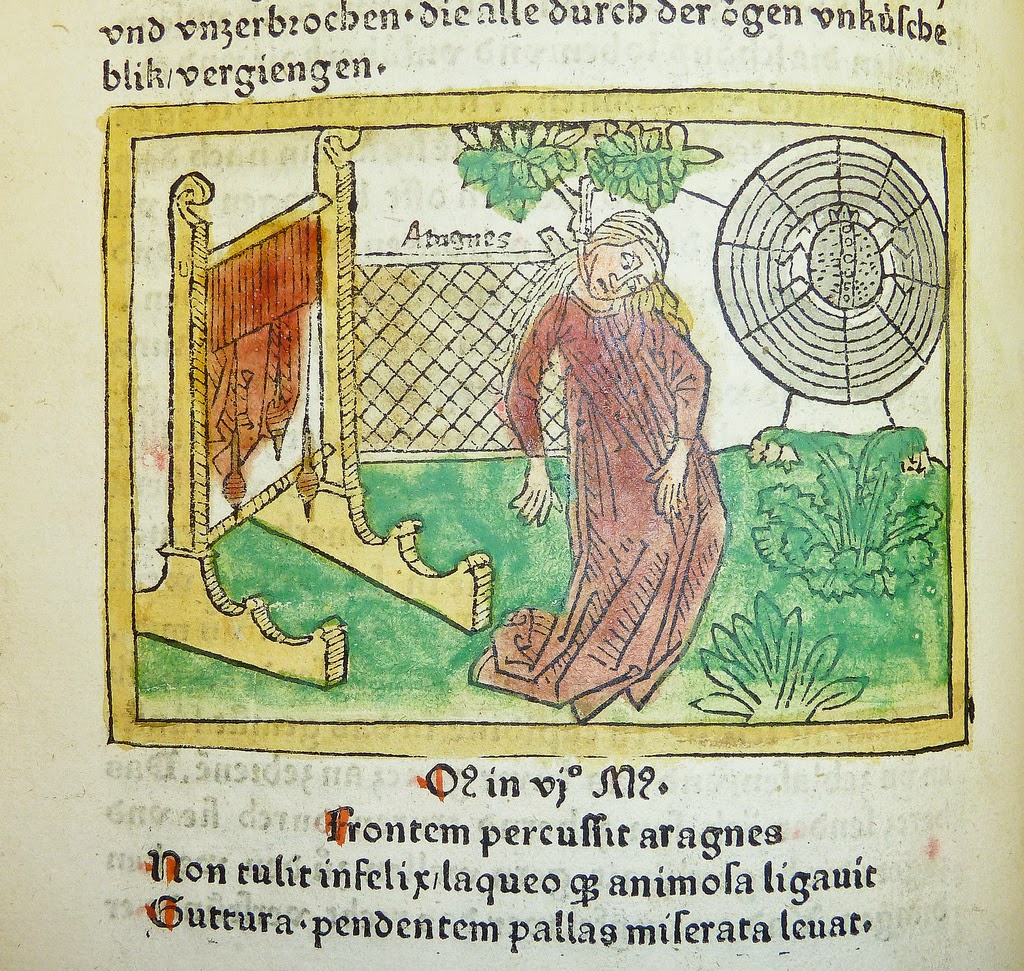 vnd vnzerbrochen·die alle durch der ögen vnküſche
blik/vergiengen.
Aragnes
Oꝛ in vjº Mꝛ.
Frontem percuſſit aragnes
Non tulit infelix/laqueo ꝙ animoſa ligauit
Guttura·pendentem pallas miſerata leuat.